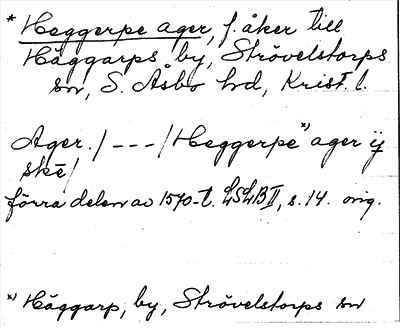 * Heggerpe ager, f. åker till
Häggarps by, Strövelstorps
sn, S. Åsbo hd, Krist. l.
Ager. / - - - / Heggerpe *) ager ij
skē /
förra delen av 1570-t. LSLB II, s. 14. orig.
*) Häggarp, by, Strövelstorps sn